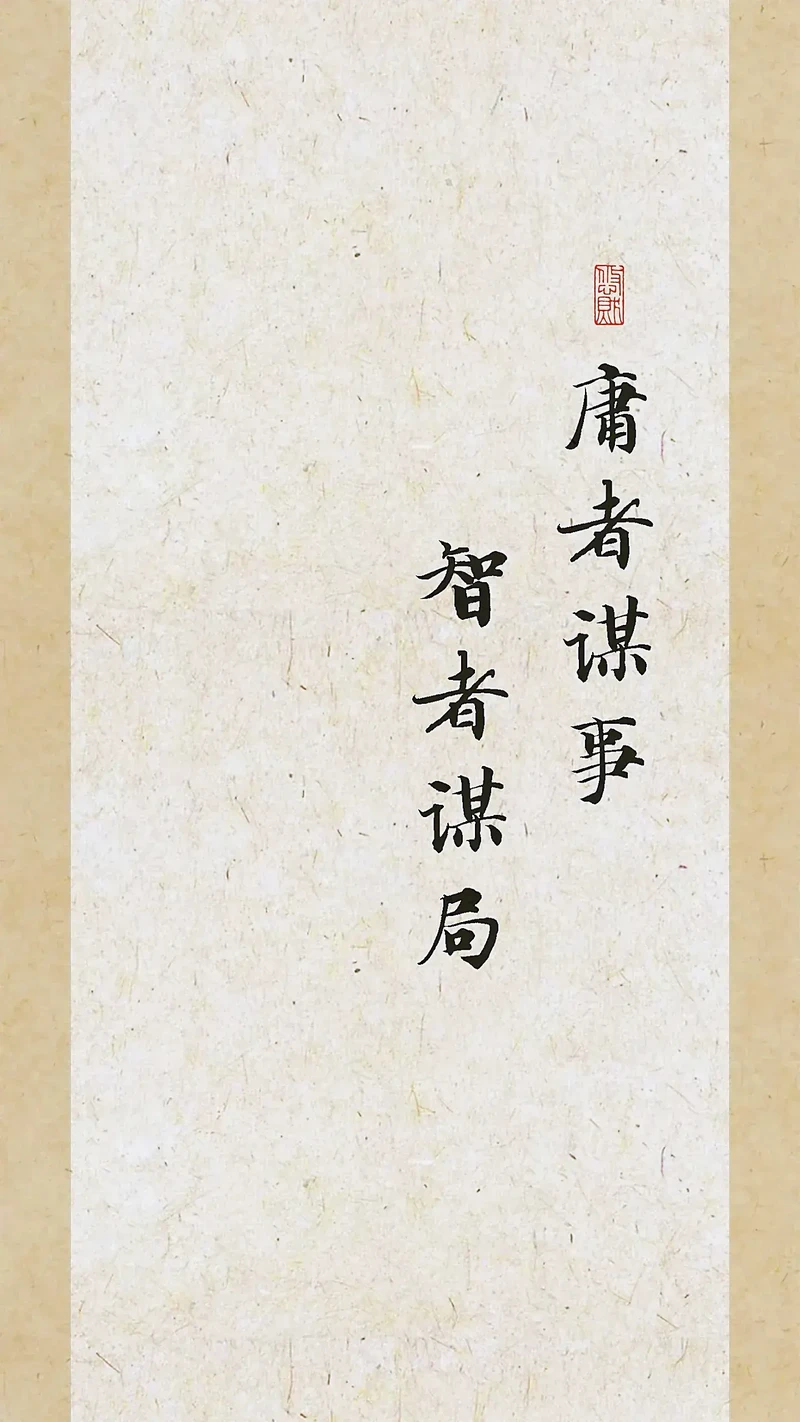 悠财
庸者谋事
智者谋局